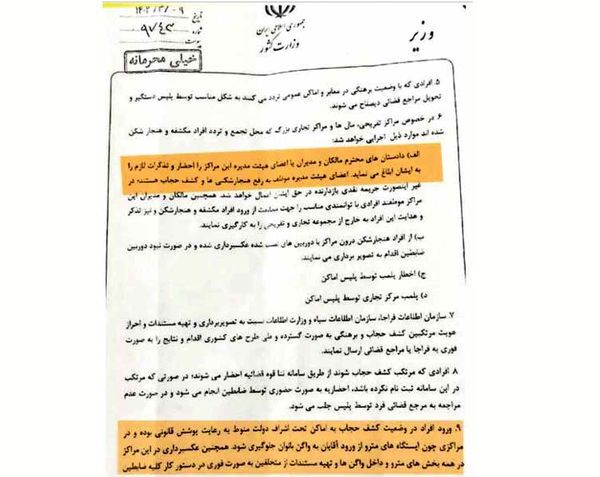 جمهوری اسلامی ایران
وزارت کشور
وزیر
تاریخ ۱۴۰۲/۳/۰۹
شماره ۹۷۴۳
پیوست
خیلی محرمانه
۵. افرادی که با وضعیت برهنگی در معابر و اماکن عمومی تردد می کنند به شکل مناسب توسط پلیس دستگیر و
تحویل مراجع قضائی ذیصلاح می شوند.
۶. در خصوص مراکز تفریحی، مال ها و مراکز تجاری بزرگ که محل تجمع و تردد افراد مکشفه و هنجار شکن
شده اند موارد ذیل اجرایی خواهد شد:
الف) دادستان های محترم مالکان و مدیران یا اعضای هیئت مدیره این مراکز را احضار و تذکرات لازم را
به ایشان ابلاغ می نماید. اعضای هیئت مدیره موظف به رفع هنجارشکنی ها و کشف حجاب هستند؛ در
غیر اینصورت جریمه نقدی بازدارنده در حق ایشان اعمال خواهد شد. همچنین مالکان و مدیران این
مراکز موظفند افرادی با توانمندی مناسب را جهت ممانعت از ورود افراد مکشفه و هنجارشکن و نیز تذکر
و هدایت این افراد به خارج از مجموعه تجاری و تفریحی را به کارگیری نمایند.
ب) از افراد هنجارشکن درون مراکز با دوربین های نصب شده عکسبرداری شده و در صورت نبود دوربین
ضابطین اقدام به تصویر برداری می نمایند.
ج) اخطار پلمب توسط پلیس اماکن
د) پلمب مرکز تجاری توسط پلیس اماکن
۷. سازمان اطلاعات فراجا، سازمان اطلاعات سپاه و وزارت اطلاعات نسبت به تصویربرداری و تهیه مستندات و احراز
هویت مرتکبین کشف حجاب و برهنگی به صورت گسترده و طی طرح های کشوری اقدام و نتایج را به صورت
فوری به فراجا یا مراجع قضائی ارسال نمایند.
۸. افرادی که مرتکب کشف حجاب شوند از طریق سامانه ثنا قوه قضائیه احضار می شوند؛ در صورتی که مرتکب
در این سامانه ثبت نام نکرده باشد، احضاریه به صورت حضوری توسط ضابطین انجام می شود و در صورت عدم
مراجعه به مرجع قضائی فرد توسط پلیس جلب می شود.
۹. ورود افراد در وضعیت کشف حجاب به اماکن تحت اشراف دولت منوط به رعایت پوشش قانونی بوده و در
مراکزی چون ایستگاه های مترو از ورود آقایان به واگن بانوان جلوگیری شود. همچنین عکسبرداری در این مراکز
در همه بخش های مترو و داخل واگن ها و تهیه مستندات از متخلفین به صورت فوری در دستور کار کلیه ضابطین